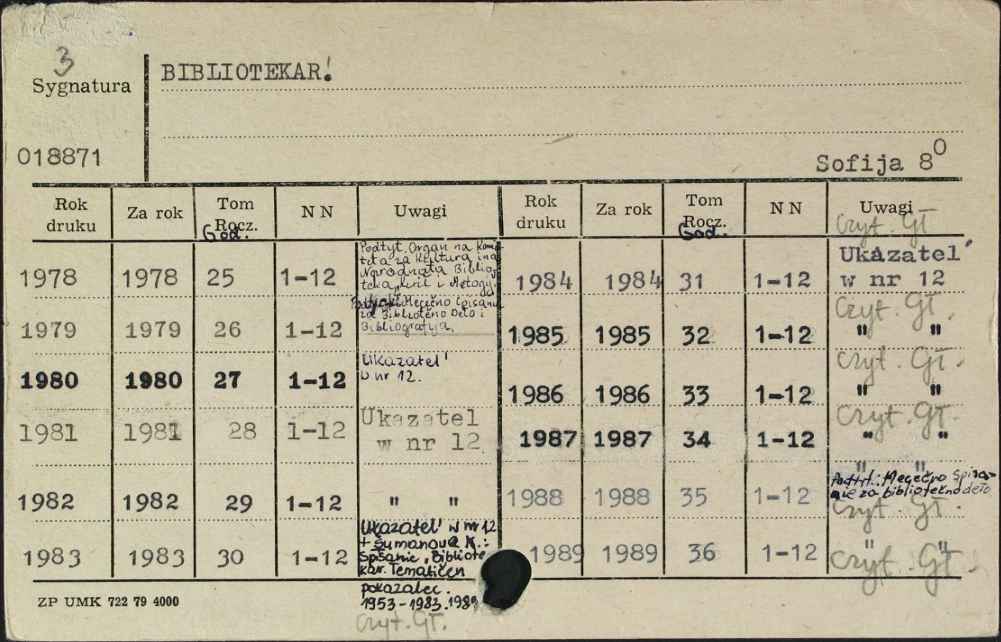 3
Sygnatura
BIBLIOTEKAR!
018871
Sofija 8⁰
Rok druku Za rok Tom Rocz. NN Uwagi Rok druku Za rok Tom Rocz. NN Uwagi
God. God. Czyt. Gł
1978 1978 25 1-12
Podtyt. Organ na Komi-
teta za Kultura i na
Narodnata Biblio-
teka, Kiril i Metody.
Mesečno Spisanie
za Bibliotečno Delo i
Bibliografija.
1984 1984 31 1-12 Ukazatel'
w nr 12
Czyt. Gł.
1979 1979 26 1-12
1985 1985 32 1-12 " "
Czyt. Gł.
1980 1980 27 1-12 Ukazatel'
w nr 12.
1986 1986 33 1-12 " "
Czyt. Gł.
1981 1981 28 1-12 Ukazatel
w nr 12
1987 1987 34 1-12 " "
" "
1982 1982 29 1-12 " "
1988 1988 35 1-12 Podtyt.: Mesečno Spisa-
nie za bibliotečno delo
Czyt. Gł.
1983 1983 30 1-12 Ukazatel' w nr 12
+ Šumanova K.:
Spisanie "Bibliote-
kar". Tematičen
pokazalec.
1953-1983. 1989
Czyt. Gł.
1989 1989 36 1-12 " "
Czyt. Gł.
ZP UMK 722 79 4000